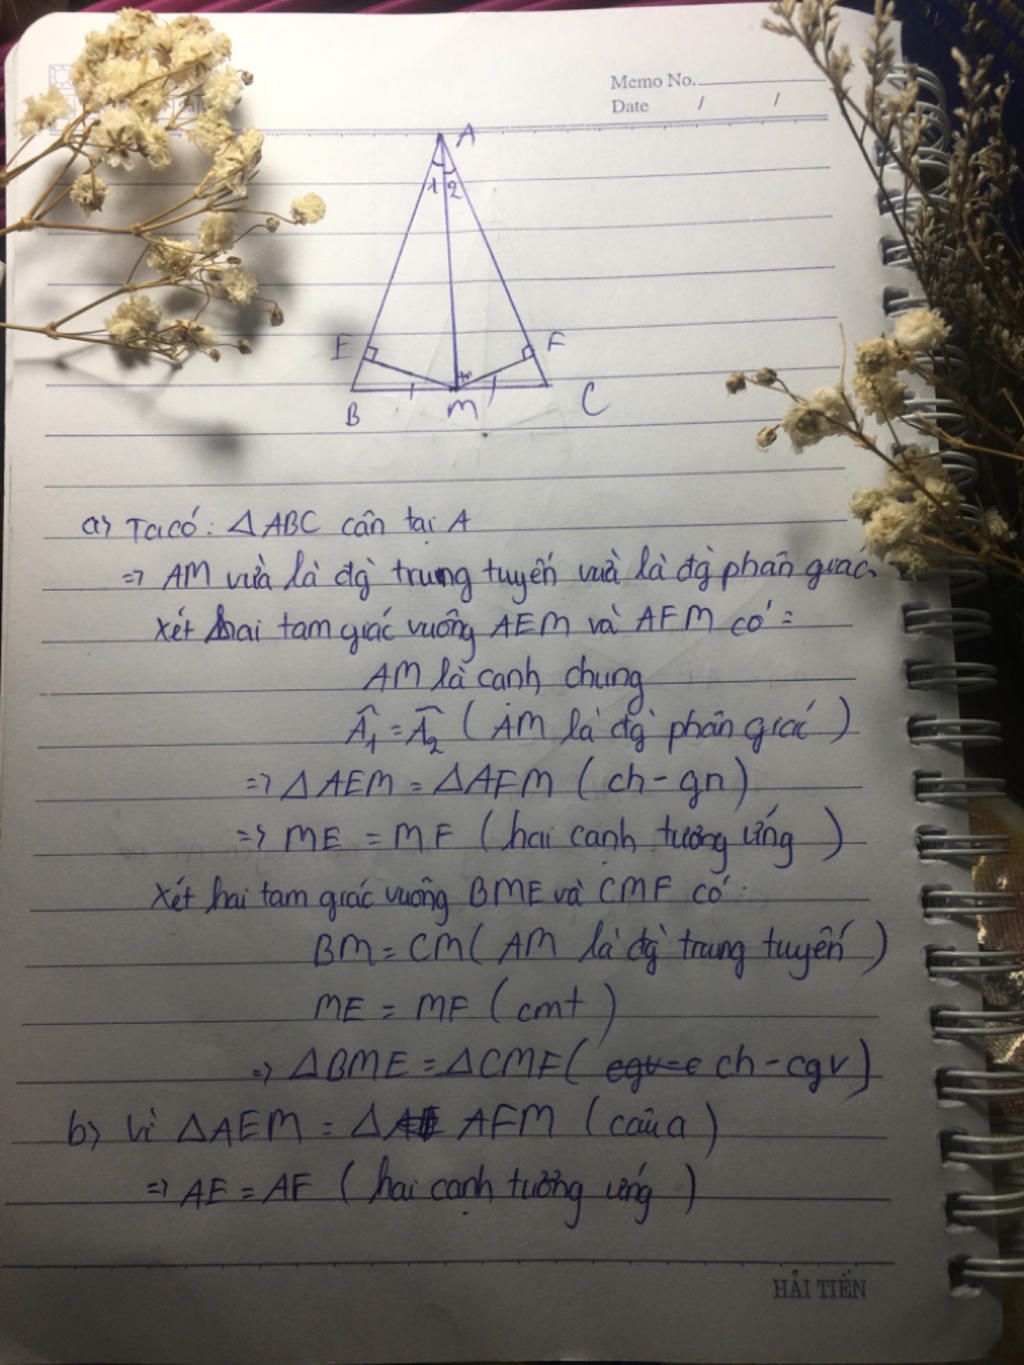 Memo No.
Date / /
A
1 2
E F
B M C
a) Ta có: △ABC cân tại A
=> AM vừa là đg` trung tuyến vừa là đg` phân giác
Xét hai tam giác vuông AEM và AFM có:
AM là cạnh chung
Â₁ = Â₂ (AM là đg` phân giác)
=> △AEM = △AFM (ch-gn)
=> ME = MF (hai cạnh tương ứng)
Xét hai tam giác vuông BME và CMF có:
BM = CM (AM là đg` trung tuyến)
ME = MF (cmt)
=> △BME = △CMF (ch-cgv)
b) Vì △AEM = △AFM (câu a)
=> AE = AF (hai cạnh tương ứng)
HẢI TIẾN